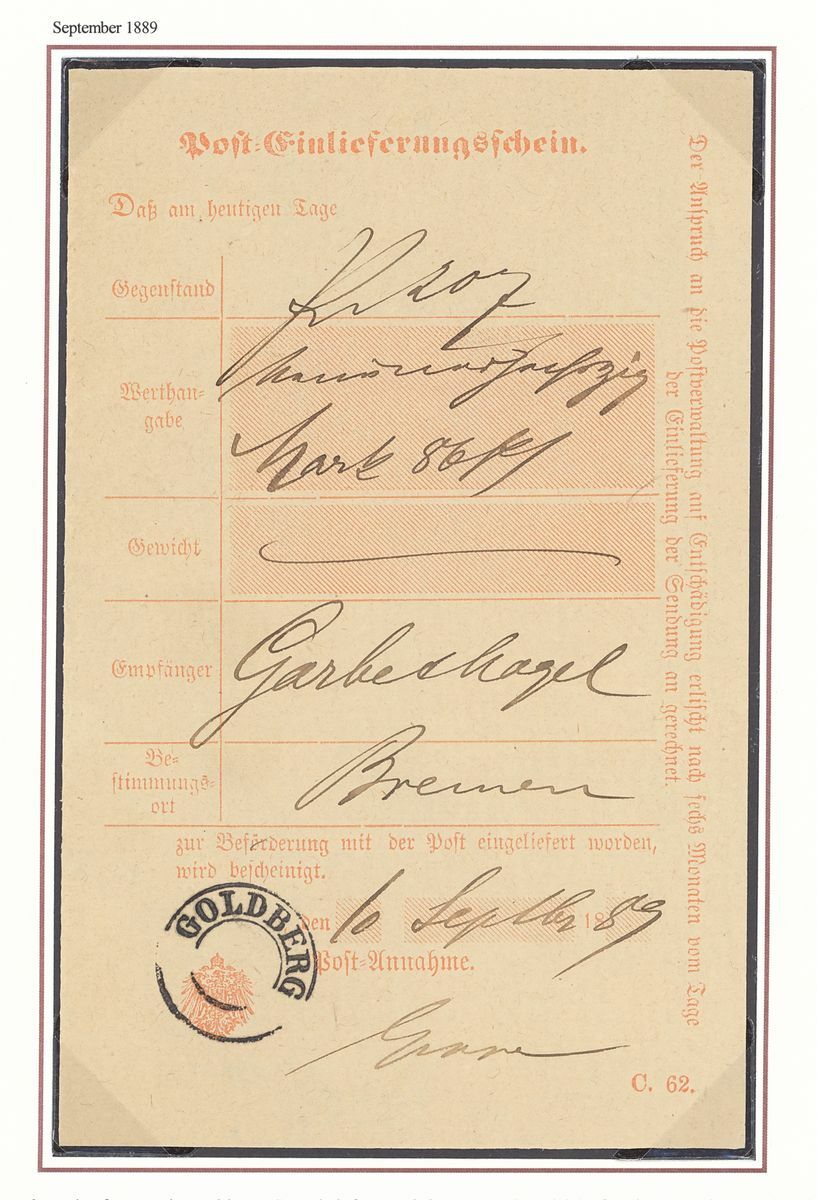 September 1889
Post-Einlieferungsschein.
Daß am heutigen Tage
Gegenstand
207
Werthan-
gabe
Mark 86 Pf
Gewicht
Empfänger
Garbeshagel
Be-
stimmungs-
ort
Bremen
zur Beförderung mit der Post eingeliefert worden,
wird bescheinigt.
den 10 Septbr 1889
Post-Annahme.
GOLDBERG
C. 62.
Der Anspruch an die Postverwaltung auf Entschädigung erlischt nach sechs Monaten vom Tage
der Einlieferung der Sendung an gerechnet.